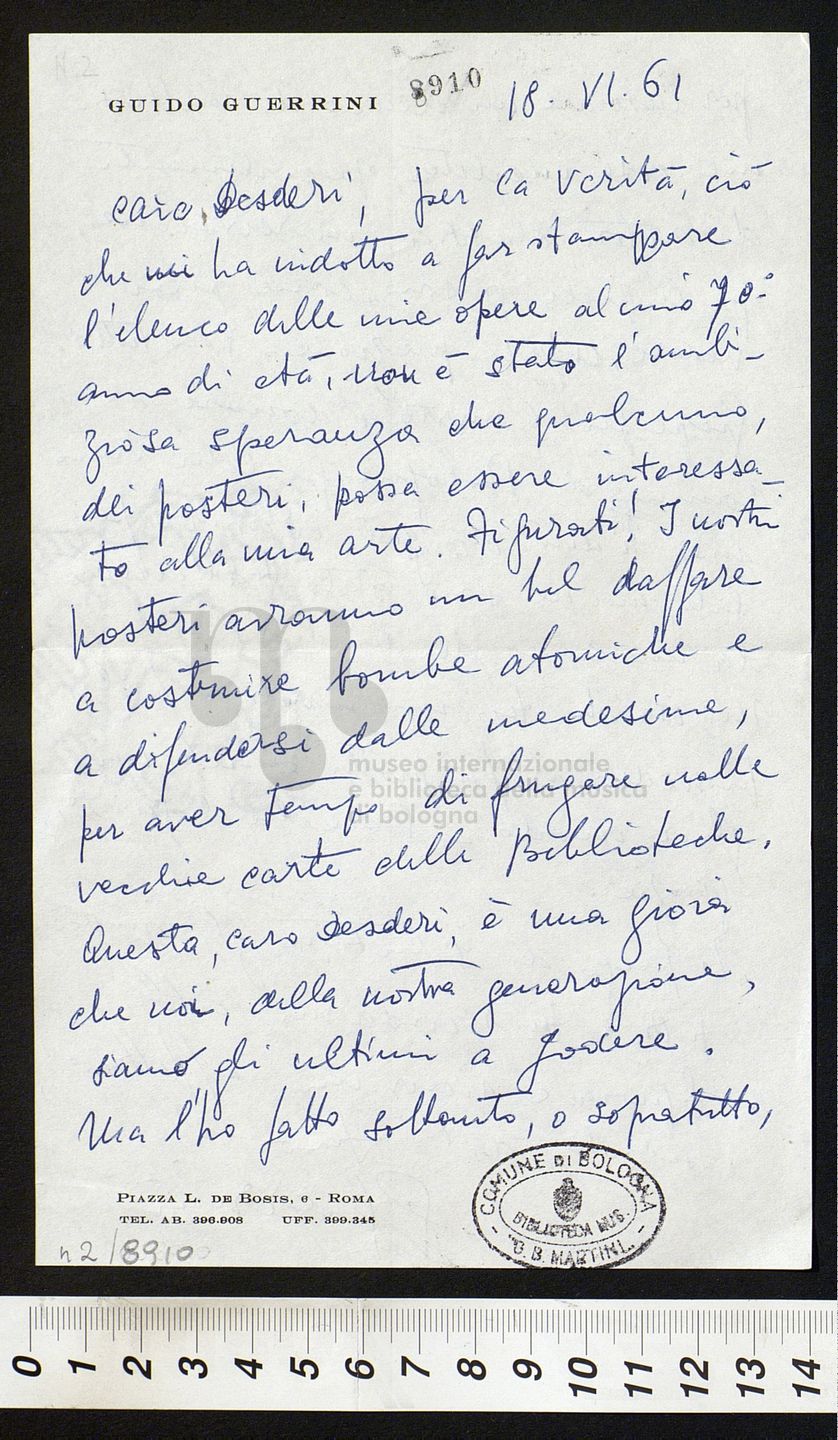 N. 2
GUIDO GUERRINI
8910
18. VI. 61
Caro Desderi, per la verità, ciò
che mi ha indotto a far stampare
l'elenco delle mie opere al mio 70°
anno di età, non è stato l'ambi-
ziosa speranza che qualcuno,
dei posteri, possa essere interessa-
to alla mia arte. Figurati! I nostri
posteri avranno un bel daffare
a costruire bombe atomiche e
a difendersi dalle medesime,
per aver tempo di frugare nelle
vecchie carte delle Biblioteche.
Questa, caro Desderi, è una gioia
che noi, della nostra generazione,
siamo gli ultimi a godere.
Ma l'ho fatto soltanto, o sopratutto,
museo internazionale
e biblioteca della musica
di bologna
PIAZZA L. DE BOSIS, 6 - ROMA
TEL. AB. 396.908 UFF. 399.345
COMUNE DI BOLOGNA
BIBLIOTECA MUS.
"G. B. MARTINI"
n 2/8910
0 1 2 3 4 5 6 7 8 9 10 11 12 13 14